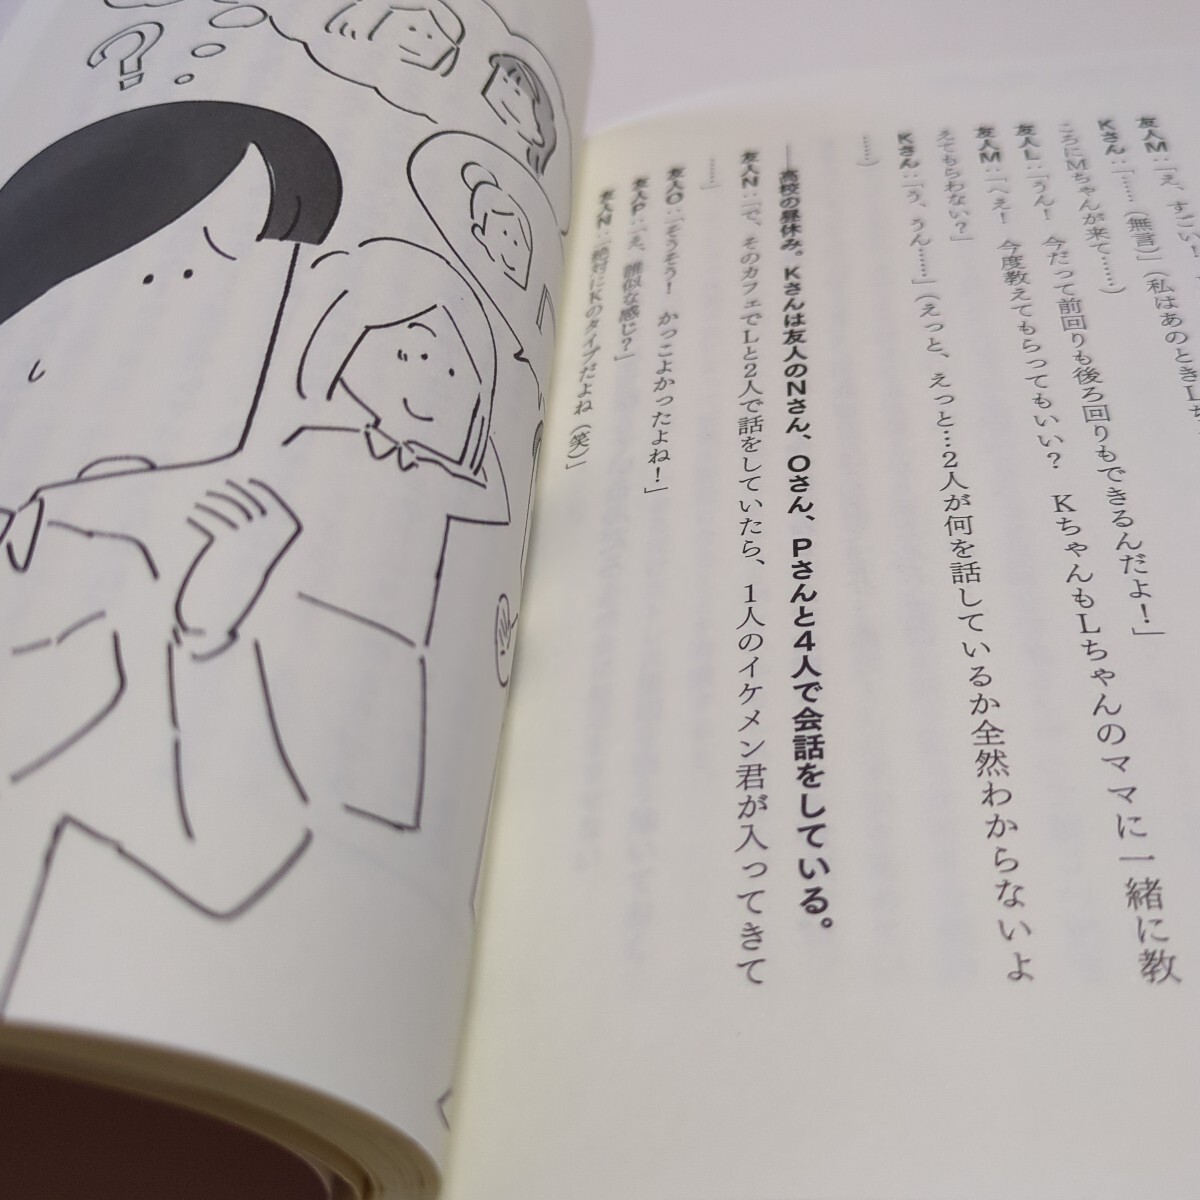 友人M:「え、すごい!
Kさん:「……(無言)」(私はあのときLち
ころにMちゃんが来て……)
友人L:「うん! 今だって前回りも後ろ回りもできるんだよ!」
友人M:「へえ! 今度教えてもらってもいい? KちゃんもLちゃんのママに一緒に教
えてもらわない?」
Kさん:「う、うん……」(えっと、えっと…2人が何を話しているか全然わからないよ
……)
――高校の昼休み。Kさんは友人のNさん、Oさん、Pさんと4人で会話をしている。
友人N:「で、そのカフェでLと2人で話をしていたら、1人のイケメン君が入ってきて
……」
友人O:「そうそう! かっこよかったよね!」
友人P:「え、誰似な感じ?」
友人N:「絶対にKのタイプだよね(笑)」
?